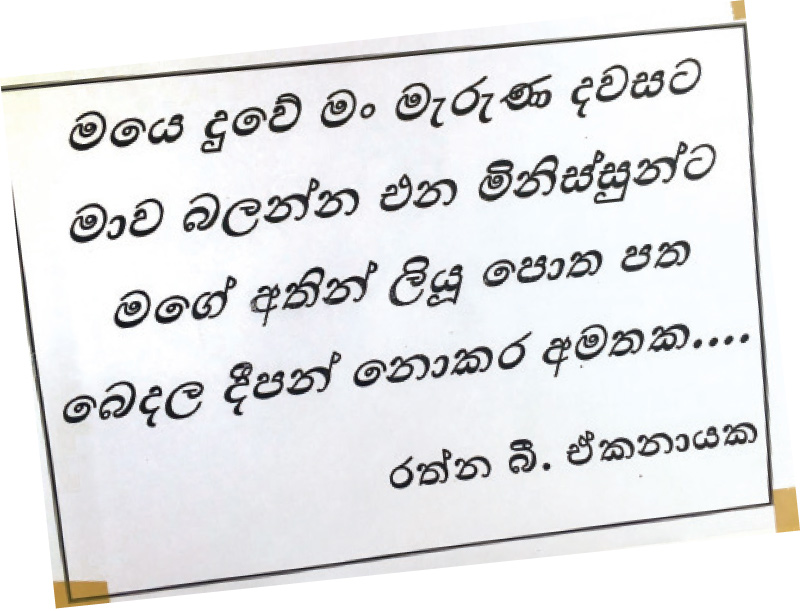 මයෙ දුවේ මං මැරුණ දවසට
මාව බලන්න එන මිනිස්සුන්ට
මගේ අතින් ලියූ පොත පත
බෙදල දීපන් නොකර අමතක....
රත්න බී. ඒකනායක